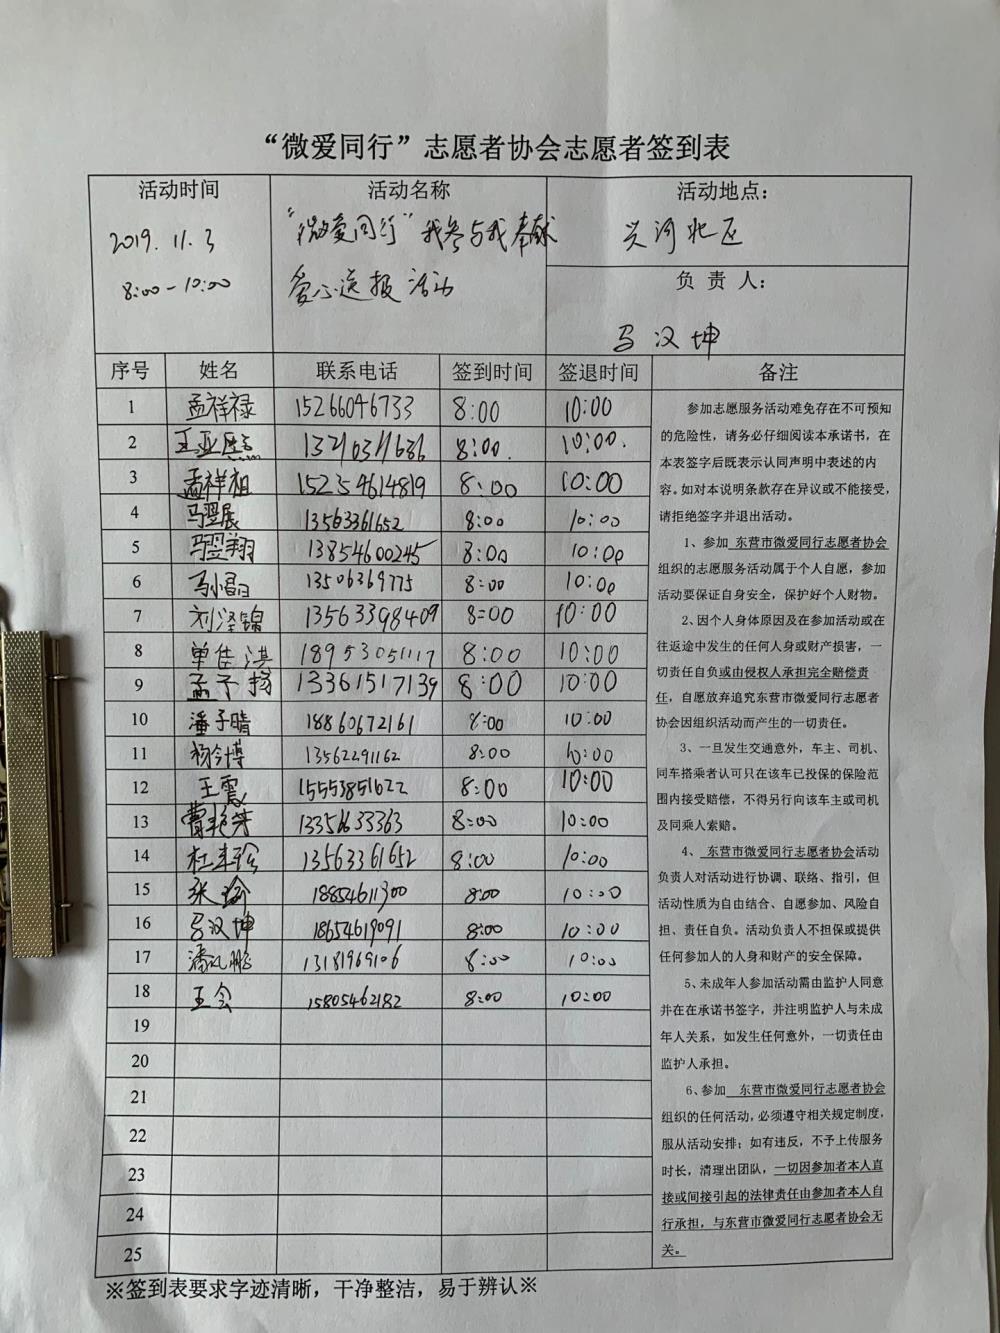 “微爱同行”志愿者协会志愿者签到表
活动时间 活动名称 活动地点：
2019.11.3 “微爱同行”我参与我奉献 兴河北区
8:00-10:00 爱心送报活动
负 责 人：
马汉坤
序号 姓名 联系电话 签到时间 签退时间 备注
1 孟祥禄 15266046733 8:00 10:00
2 8:00. 10:00.
3 孟祥祖 15254614819 8:00 10:00
4 马翌展 13563361652 8:00 10:00
5 马翌翔 13854600245 8:00 10:00
6 马小昌 13506369775 8:00 10:00
7 刘泽锦 13563398409 8:00 10:00
8 单佳淇 18953051117 8:00 10:00
9 孟予扬 13361517139 8:00 10:00
10 潘子晴 18860672161 8:00 10:00
11 杨今博 13562291162 8:00 10:00
12 王震 15553851622 8:00 10:00
13 8:00 10:00
14 13563361652 8:00 10:00
15 张瑜 18854611300 8:00 10:00
16 马汉坤 18654619091 8:00 10:00
17 13181969106 8:00 10:00
18 王会 15805462182 8:00 10:00
19
20
21
22
23
24
25
参加志愿服务活动难免存在不可预知
的危险性，请务必仔细阅读本承诺书，在
本表签字后既表示认同声明中表述的内
容。如对本说明条款存在异议或不能接受，
请拒绝签字并退出活动。
1、参加 东营市微爱同行志愿者协会
组织的志愿服务活动属于个人自愿，参加
活动要保证自身安全，保护好个人财物。
2、因个人身体原因及在参加活动或在
往返途中发生的任何人身或财产损害，一
切责任自负或由侵权人承担完全赔偿责
任，自愿放弃追究东营市微爱同行志愿者
协会因组织活动而产生的一切责任。
3、一旦发生交通意外，车主、司机、
同车搭乘者认可只在该车已投保的保险范
围内接受赔偿，不得另行向该车主或司机
及同乘人索赔。
4、东营市微爱同行志愿者协会活动
负责人对活动进行协调、联络、指引，但
活动性质为自由结合、自愿参加、风险自
担、责任自负。活动负责人不担保或提供
任何参加人的人身和财产的安全保障。
5、未成年人参加活动需由监护人同意
并在在承诺书签字，并注明监护人与未成
年人关系，如发生任何意外，一切责任由
监护人承担。
6、参加 东营市微爱同行志愿者协会
组织的任何活动，必须遵守相关规定制度，
服从活动安排；如有违反，不予上传服务
时长，清理出团队，一切因参加者本人直
接或间接引起的法律责任由参加者本人自
行承担，与东营市微爱同行志愿者协会无
关。
※签到表要求字迹清晰，干净整洁，易于辨认※